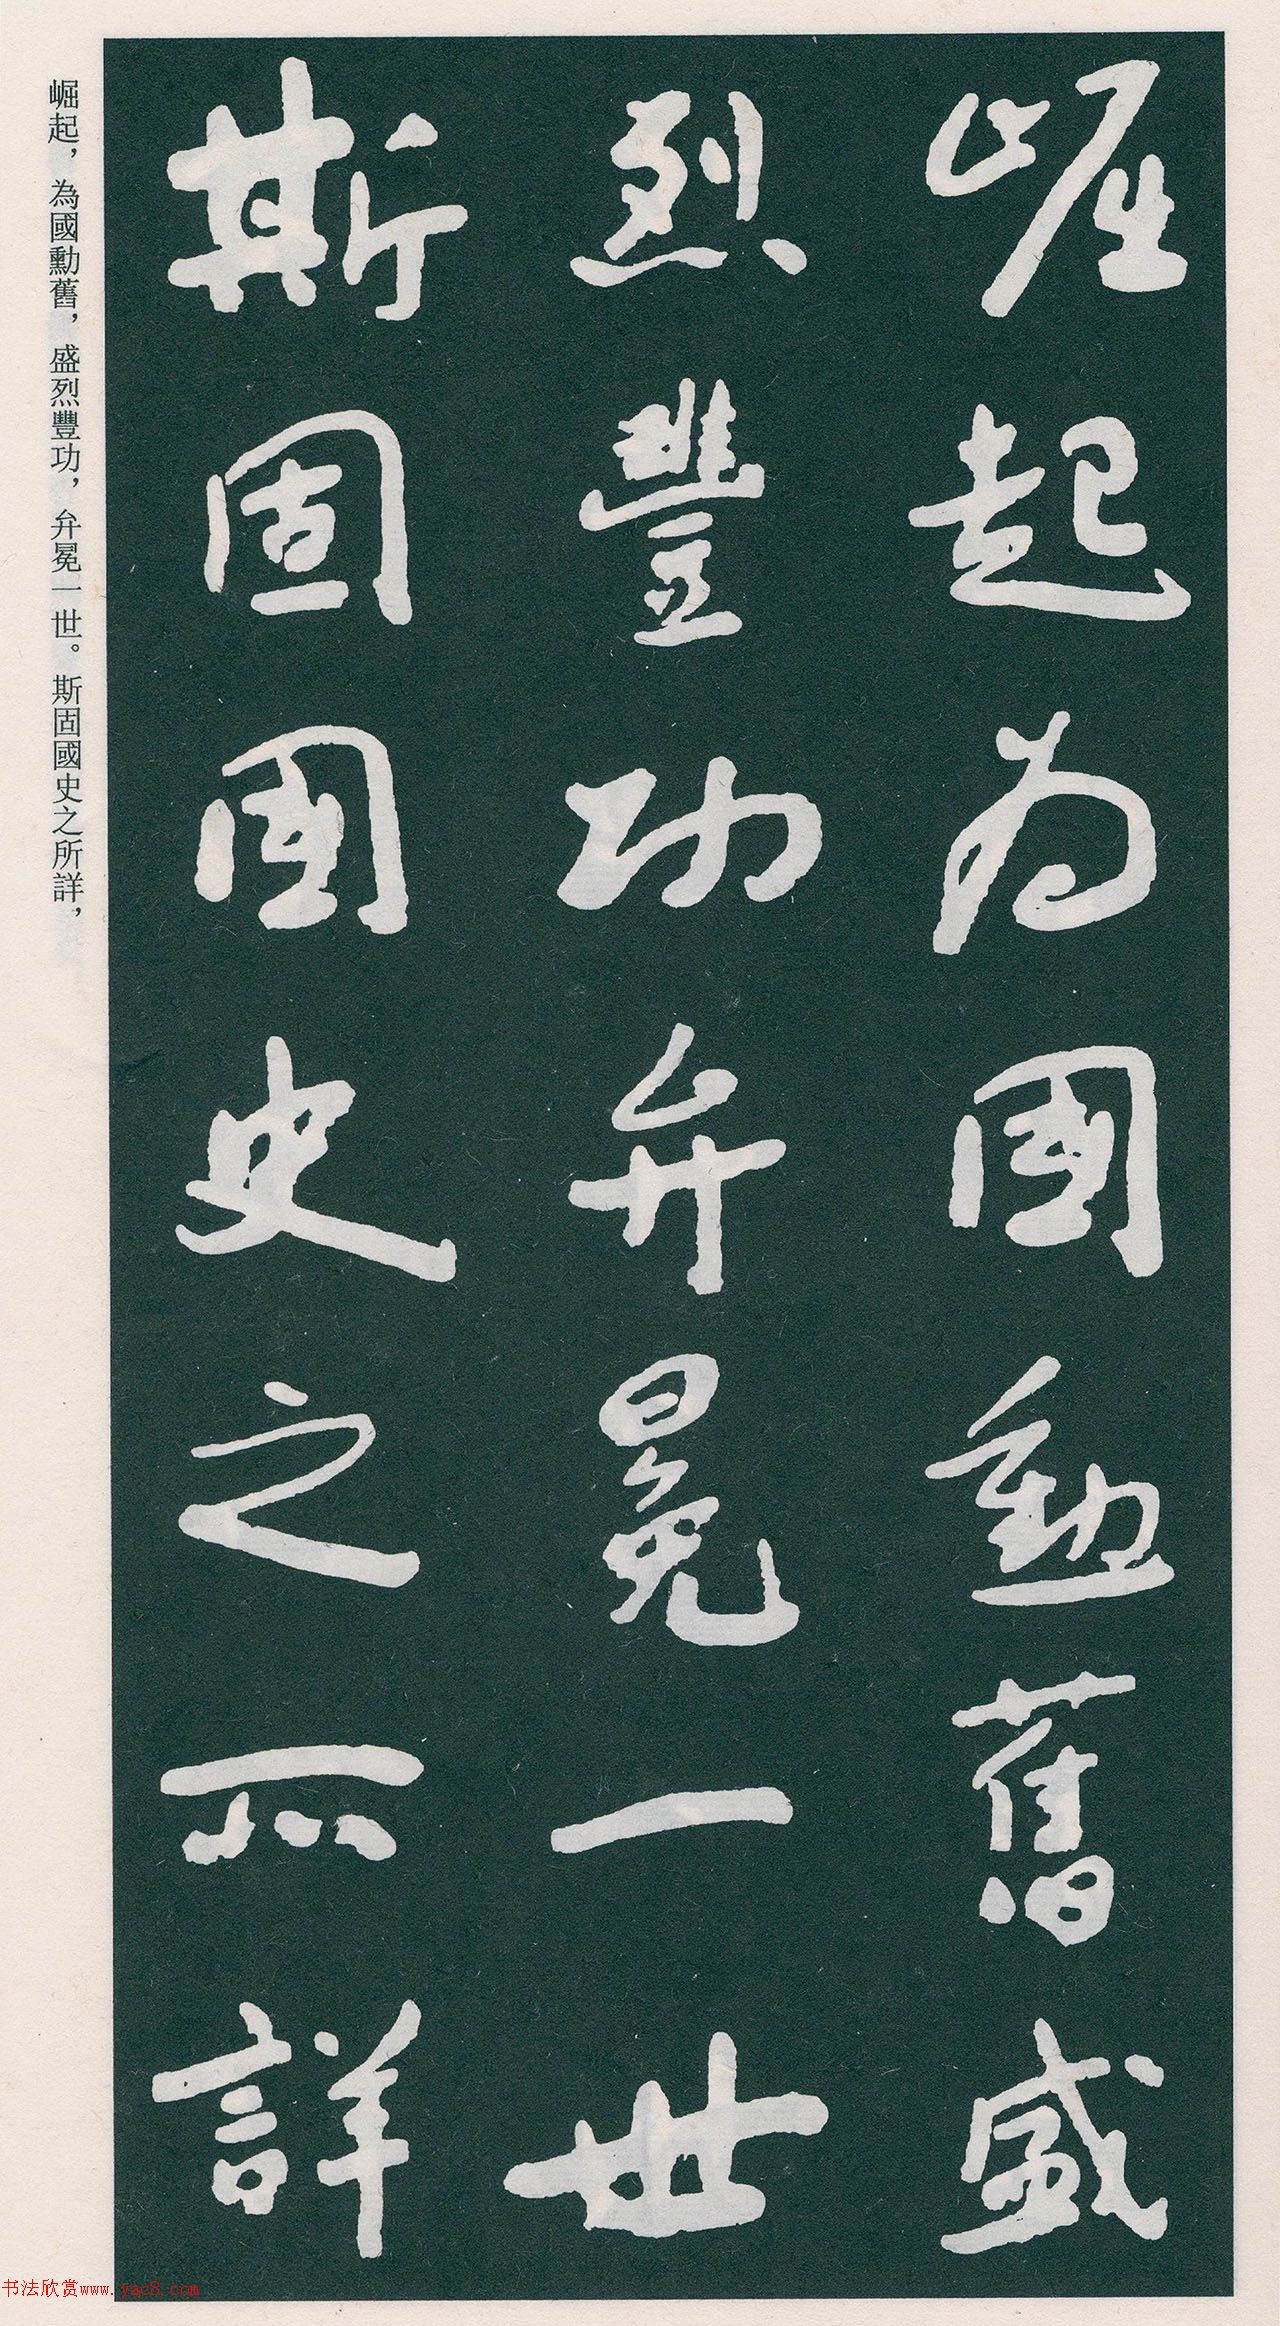 崛起为國勳舊盛
烈豐功弁冕一世
斯固國史之所詳
崛起，為國勳舊，盛烈豐功，弁冕一世。斯固國史之所詳，
书法欣赏www.yac8.com